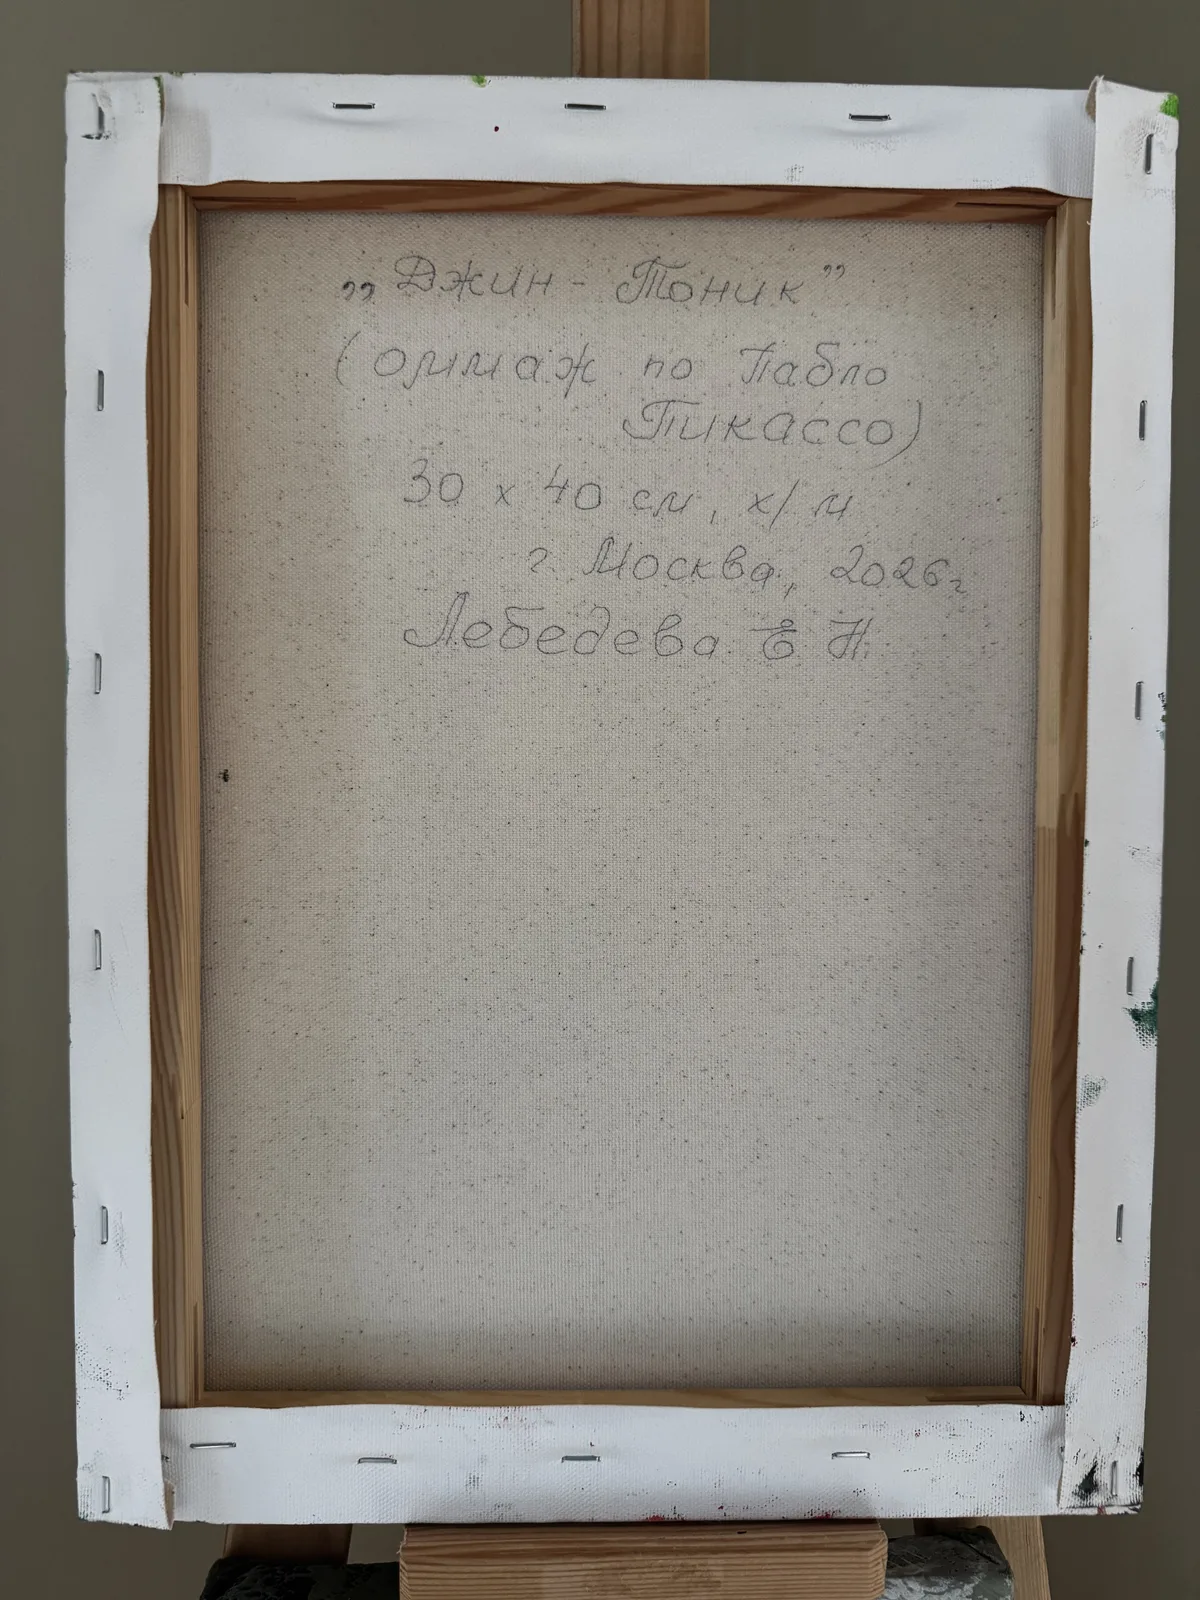 „Джин - Тоник”
(оммаж по Пабло
Пикассо)
30 х 40 см, х/м
г. Москва, 2026г
Лебедева Е Н.